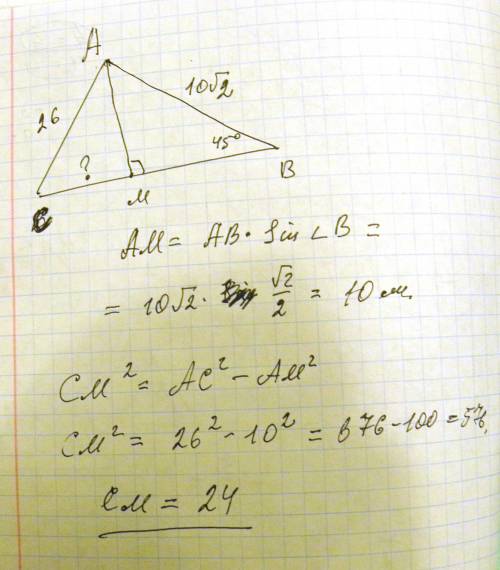 A
26
10√2
45°
?
C
M
B
AM = AB · Sin ∠B =
= 10√2 · √2/2 = 10 см.
CM² = AC² - AM²
CM² = 26² - 10² = 676 - 100 = 576
CM = 24